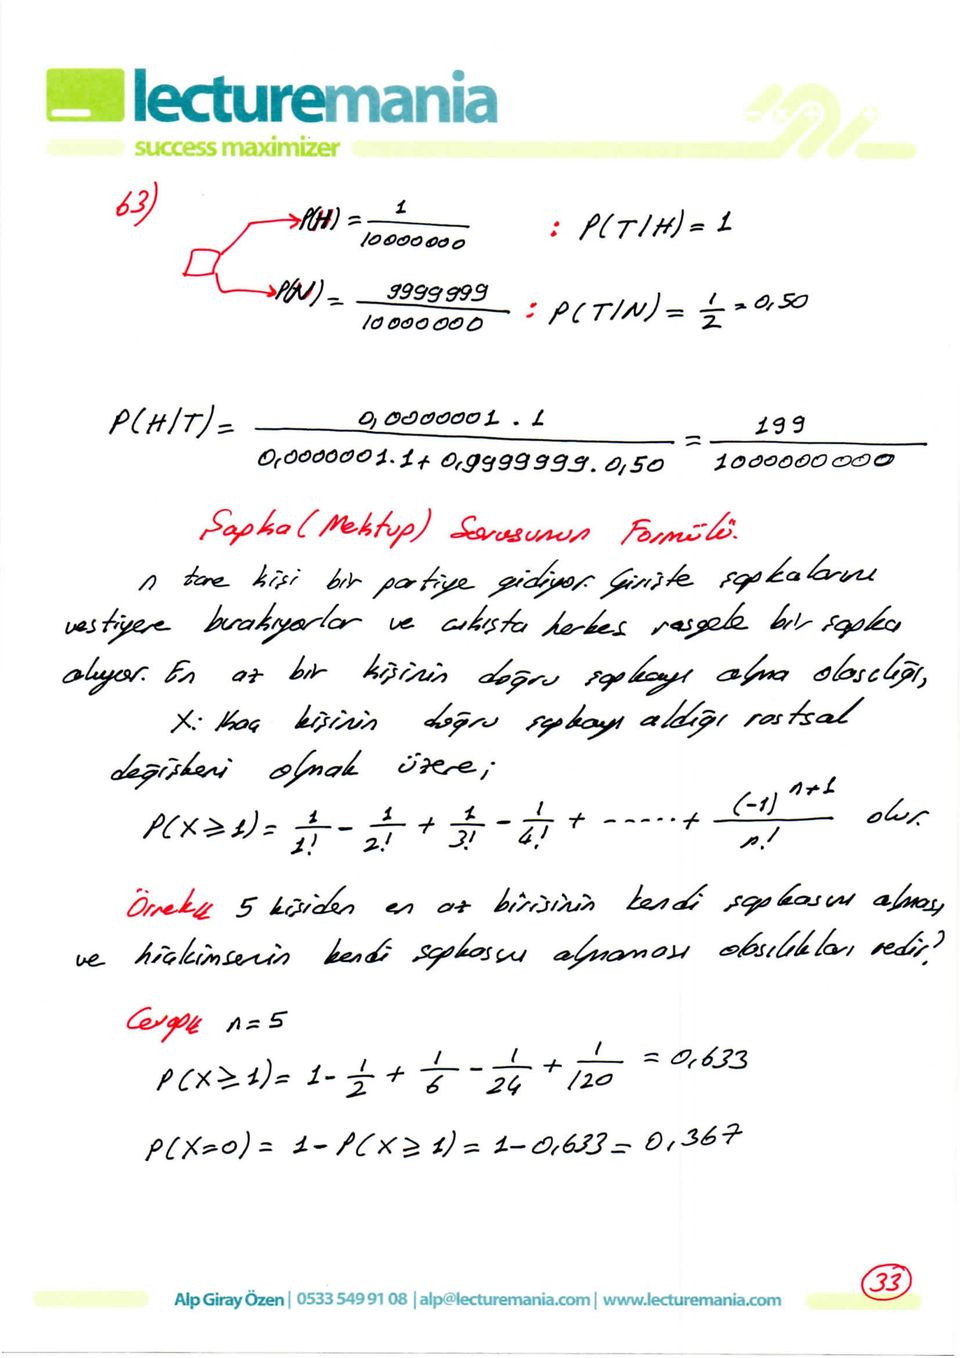 lecturemania
success maximizer
63)
P(H) = 1 / 10000000 : P(T/H) = 1
P(N) = 9999999 / 10000000 : P(T/N) = 1/2 = 0,50
P(H/T) = 0,0000001 . 1 / 0,0000001.1 + 0,9999999.0,50 = 199 / 1000000000
Şapka (Mektup) Sorusunun Formülü.
n tane kişi bir partiye gidiyor. Girişte şapkalarını
vestiyere bırakıyorlar ve çıkışta herkes rasgele bir şapka
alıyor. En az bir kişinin doğru şapkayı alma olasılığı,
X: Kaç kişinin doğru şapkayı aldığı rastsal
değişkeni olmak üzere;
P(X≥1) = 1/1! - 1/2! + 1/3! - 1/4! + ----- + (-1)^n+1 / n! olur.
Örnek: 5 kişiden en az birisinin kendi şapkasını alması
ve hiçkimsenin kendi şapkasını almaması olasılıkları nedir?
Cevap: n = 5
P(X≥1) = 1 - 1/2 + 1/6 - 1/24 + 1/120 = 0,633
P(X=0) = 1 - P(X≥1) = 1-0,633 = 0,367
33
Alp Giray Özen | 0533 549 91 08 | alp@lecturemania.com | www.lecturemania.com